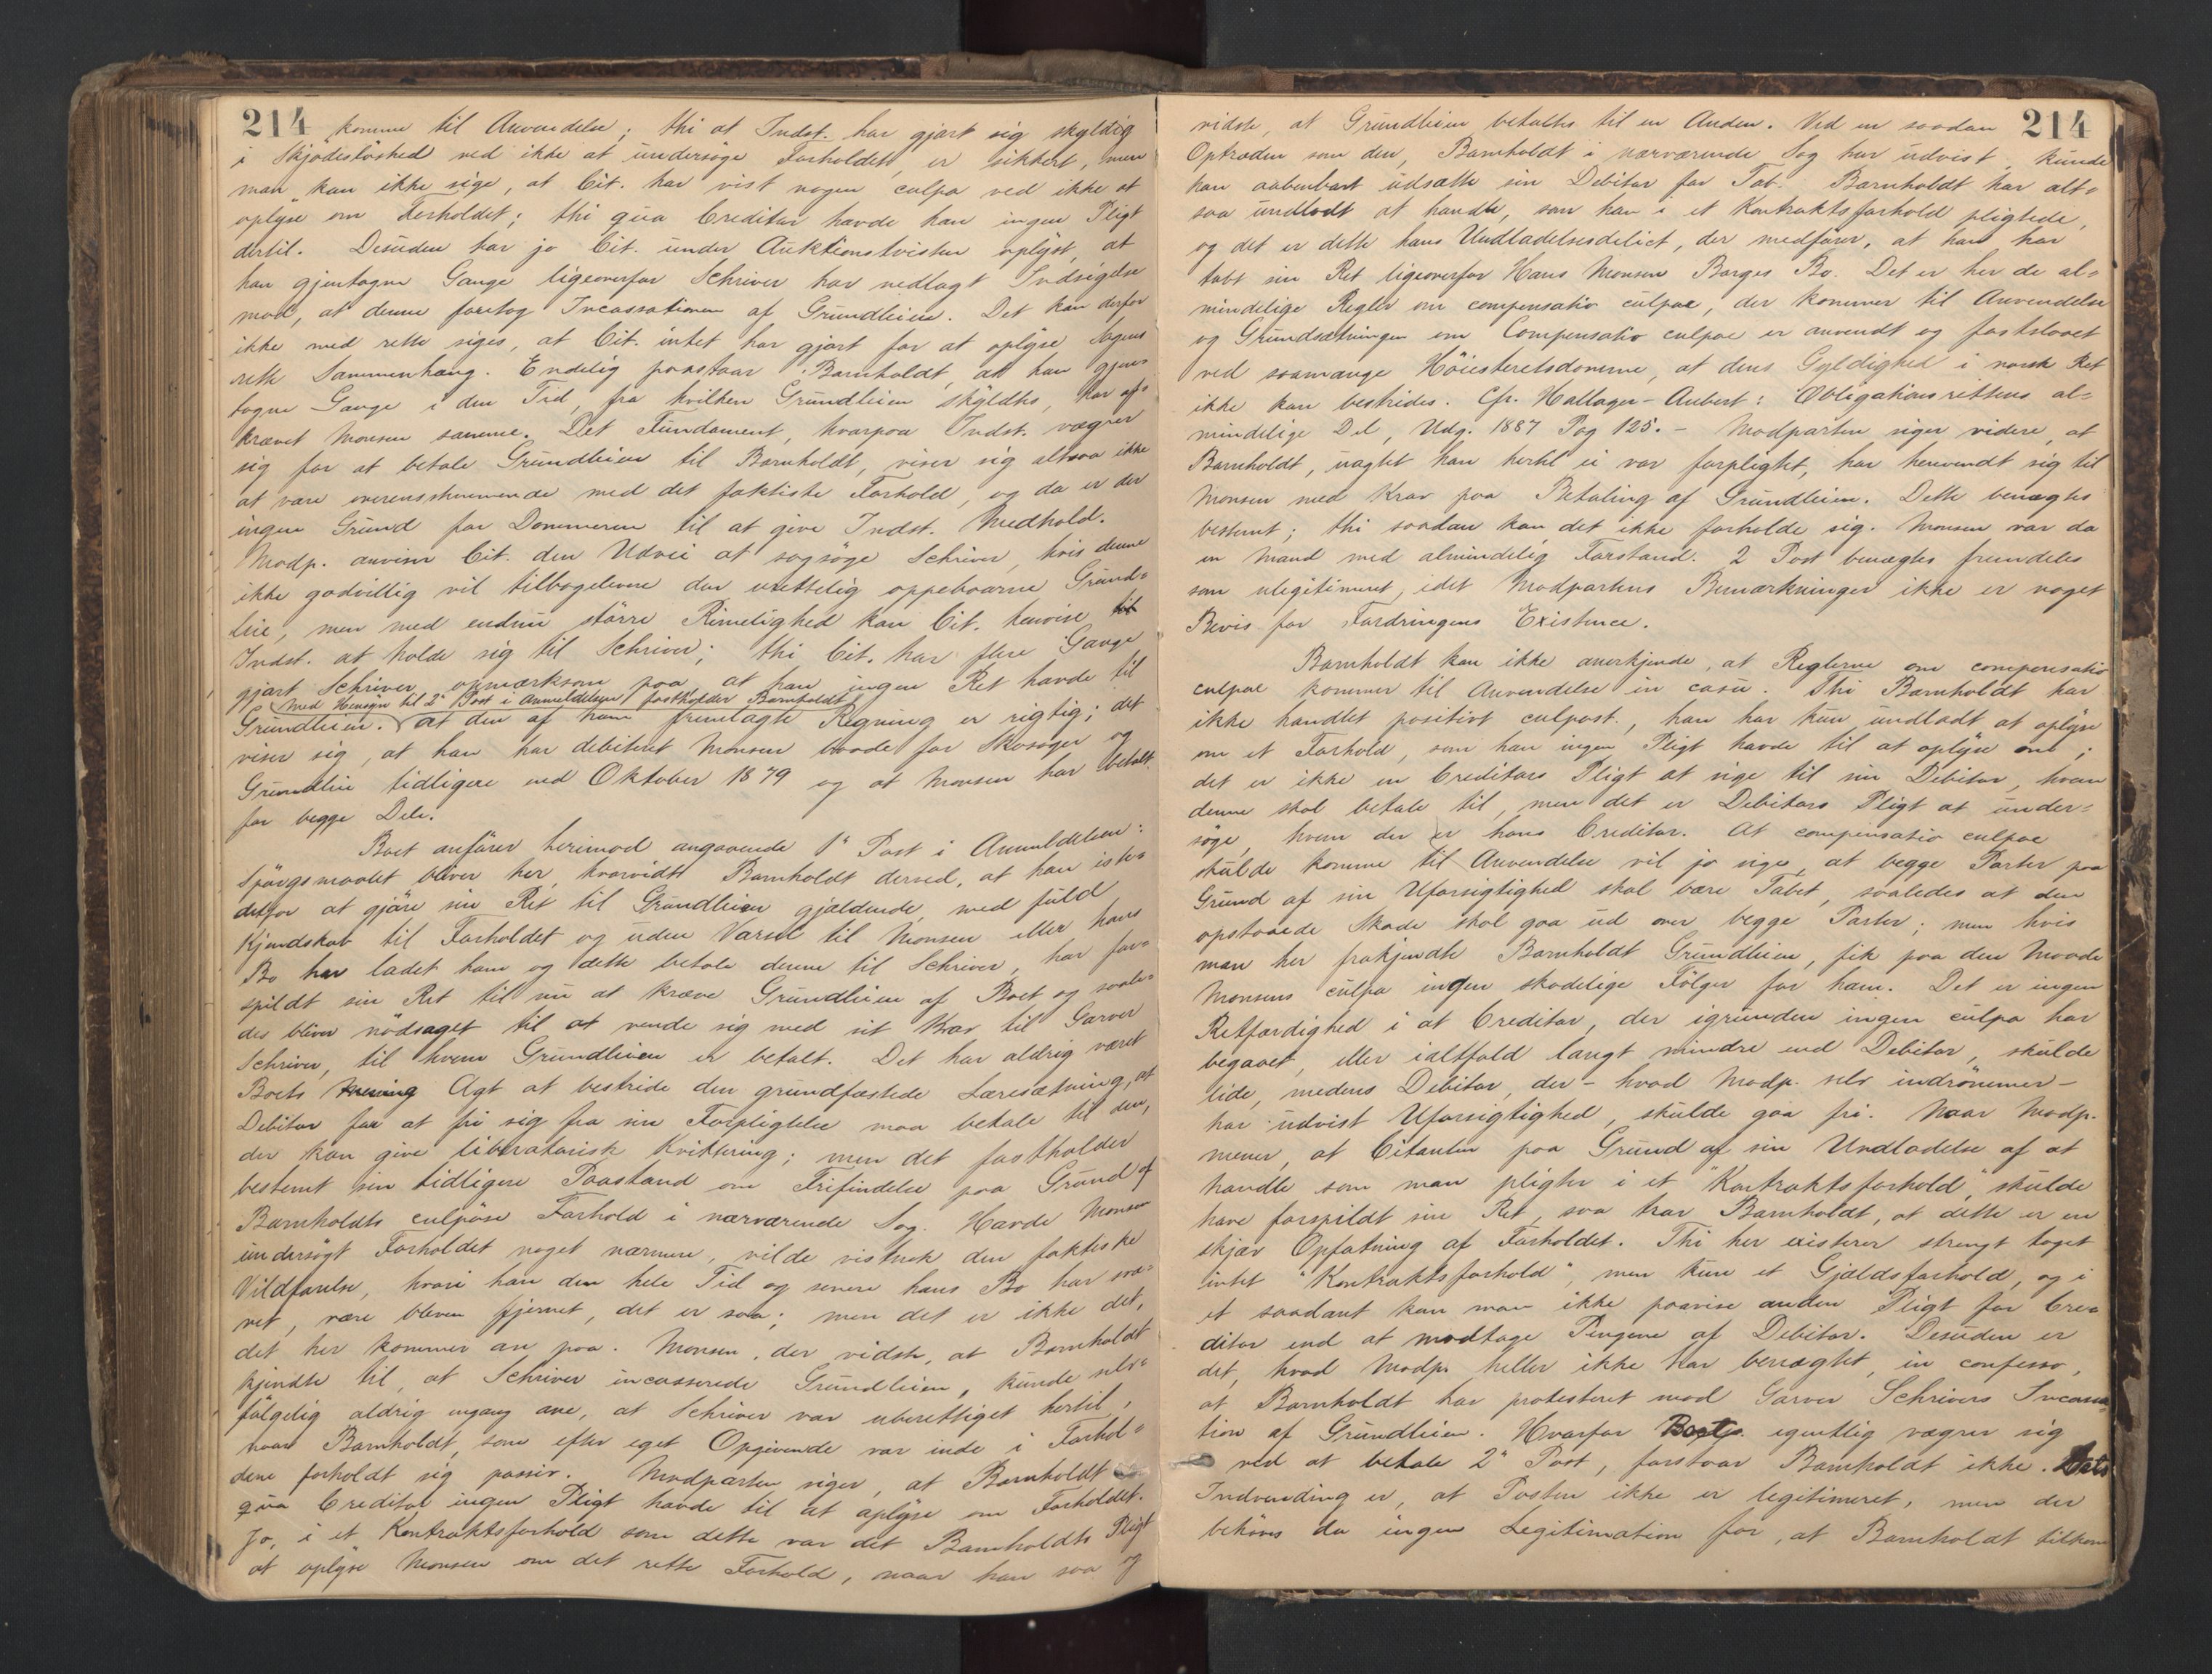 214 komme til Anvendelse; thi at Indst. har gjort sig skyldig
i Skjødesløshed ved ikke at undersøge Forholdet, er sikkert, men
man kan ikke sige, at Cit. har vist nogen culpa ved ikke at
oplyse om Forholdet; thi qua Creditor havde han ingen Pligt
dertil. Desuden har jo Cit. under Auktionstvisten oplyst, at
han gjentagne Gange ligeoverfor Schriver har nedlagt Indsigelse
mod, at denne foretog Incassationen af Grundleien. Det kan derfor
ikke med rette siges, at Cit. intet har gjort for at oplyse Sagens
rette Sammenhæng. Endelig paastaar Barnholdt, at han gjen-
tagne Gange i den Tid, fra hvilken Grundleien skyldtes, har af-
krævet Monsen samme. Det Fundament, hvorpaa Indst. vægrer
sig for at betale Grundleien til Barnholdt, viser sig altsaa ikke
at være overensstemmende med det faktiske Forhold, og da er der
ingen Grund for Dommeren til at give Indst. Medhold.
Modp. anviser Cit. den Udvei at sagsøge Schriver, hvis denne
ikke godvillig vil tilbagelevere den urettelig oppebaarne Grund-
leie, men med endnu større Rimelighed kan Cit. henvise til
Indst. at holde sig til Schriver; thi Cit. har flere Gange
gjort Schriver opmærksom paa, at han ingen Ret havde til
med Hensyn til 2 Post i Anmeldelsen fastholder Barnholdt
Grundleien. at den af ham fremlagte Regning er rigtig; det
viser sig, at han har debiteret Monsen baade for Skosager og
Grundleie tidligere end Oktober 1879 og at Monsen har betalt
for begge Dele.
Boet anfører herimod angaaende 1ste Post i Anmeldelsen:
Spørgsmaalet bliver her, hvorvidt Barnholdt derved, at han iste-
detfor at gjøre sin Ret til Grundleien gjældende, med fuld
Kjendskab til Forholdet og uden Varsel til Monsen eller hans
Bo har ladet ham og dette betale denne til Schriver, har for-
spildt sin Ret til nu at kræve Grundleien af Boet og saale-
des bliver nødsaget til at vende sig med sit Krav til Garver
Schriver, til hvem Grundleien er betalt. Det har aldrig været
Boets Agt at bestride den grundfæstede Læresætning, at
Debitor for at fri sig fra sin Forpligtelse maa betale til den,
der kan give liberatorisk Kvittering; men det fastholder
bestemt sin tidligere Paastand om Frifindelse paa Grund af
Barnholdts culpøse Forhold i nærværende Sag. Havde Monsen
undersøgt Forholdet noget nærmere, vilde vistnok den faktiske
Vildfarelse, hvori han den hele Tid og senere hans Bo har svæ-
vet, være bleven fjernet, det er saa; men det er ikke det,
det her kommer an paa. Monsen, der vidste, at Barnholdt
kjendte til, at Schriver incasserede Grundleien, kunde selv-
følgelig aldrig engang ane, at Schriver var uberettiget hertil,
naar Barnholdt, som efter eget Opgivende var inde i Forhol-
dene forholdt sig passiv. Modparten siger, at Barnholdt
qua Creditor ingen Pligt havde til at oplyse om Forholdet.
Jo, i et Kontraktsforhold som dette var det Barnholdts Pligt
at oplyse Monsen om det rette Forhold, naar han saa og
vidste, at Grundleien betaltes til en Anden. Ved en saadan 214
Optræden som den, Barnholdt i nærværende Sag har udvist, kunde
han aabenbart udsætte sin Debitor for Tab. Barnholdt har alt-
saa undladt at handle, som han i et Kontraktsforhold pligtede,
og det er dette hans Undladelsesdelict, der medfører, at han har
tabt sin Ret ligeoverfor Hans Monsen Borges Bo. Det er her de al-
mindelige Regler om compensatio culpae, der kommer til Anvendelse
og Grundsætningen om Compensatio culpae er anvendt og fastslaaet
ved saamange Høiesteretsdomme, at dens Gyldighed i norsk Ret
ikke kan bestrides. Cfr. Hallager-Aubert: Obligationsrettens al-
mindelige Del, Udg. 1887 Pag 125. - Modparten siger videre, at
Barnholdt, uagtet han hertil ei var forpligtet, har henvendt sig til
Monsen med Krav paa Betaling af Grundleien. Dette benægtes
bestemt; thi saadan kan det ikke forholde sig. Monsen var da
en Mand med almindelig Forstand. 2 Post benægtes fremdeles
som ulegitimeret, idet Modpartens Bemærkninger ikke er noget
Bevis for Fordringens Existence.
Barnholdt kan ikke anerkjende, at Reglerne om compensatio
culpae kommer til Anvendelse in casu. Thi Barnholdt har
ikke handlet positivt culpøst, han har kun undladt at oplyse
om et Forhold, som han ingen Pligt havde til at oplyse om;
det er ikke en Creditors Pligt at sige til sin Debitor, hvem
denne skal betale til, men det er Debitors Pligt at under-
søge, hvem der er hans Creditor. At compensatio culpae
skulde komme til Anvendelse vil jo sige, at begge Parter paa
Grund af sin Uforsigtighed skal bære Tabet, saaledes at den
opstaaede Skade skal gaa ud over begge Parter; men hvis
man her frakjendte Barnholdt Grundleien, fik paa den Maade
Monsens culpa ingen skadelige Følger for ham. Det er ingen
Retfærdighed i at Creditor, der igrunden ingen culpa har
begaaet, eller ialtfald langt mindre end Debitor, skulde
lide, medens Debitor, der - hvad Modp. selv indrømmer -
har udvist Uforsigtighed, skulde gaa fri. Naar Modp.
mener, at Citanten paa Grund af sin Undladelse af at
handle som man pligter i et "Kontraktsforhold", skulde
have forspildt sin Ret, saa tror Barnholdt, at dette er en
skjæv Opfatning af Forholdet. Thi her existerer strengt taget
intet "Kontraktsforhold", men kun et Gjældsforhold, og i
et saadant kan man ikke paavise anden Pligt for Cre-
ditor end at modtage Pengene af Debitor. Desuden er
det, hvad Modp. heller ikke har benægtet, in confesso,
at Barnholdt har protesteret mod Garver Schrivers Incassa-
tion af Grundleien. Hvorfor Boet egentlig vægrer sig
ved at betale 2den Post, forstaar Barnholdt ikke. Dets
Indvending er, at Posten ikke er legitimeret, men der
behøves da ingen Legitimation for, at Barnholdt tilkom